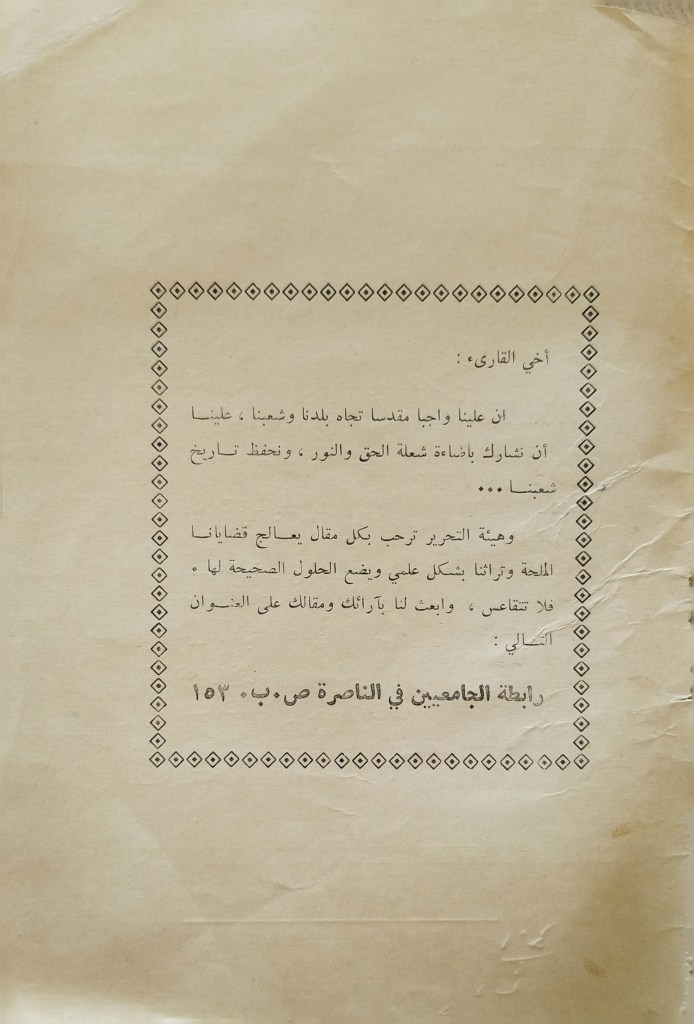 أخي القارىء :
ان علينا واجبا مقدسا تجاه بلدنا وشعبنا ، علينـــا
أن نشارك باضاءة شعلة الحق والنور ، ونحفظ تـــاريخ
شعبنـــا •••
وهيئة التحرير ترحب بكل مقال يعـــالج قضايانـــا
الملحة وتراثنا بشكل علمي ويضع الحلول الصحيحة لها •
فلا تتقاعس ، وابعث لنا بآرائك ومقالك على العنـــوان
التـــالي :
رابطة الجامعيين في الناصرة ص•ب• ١٥٣